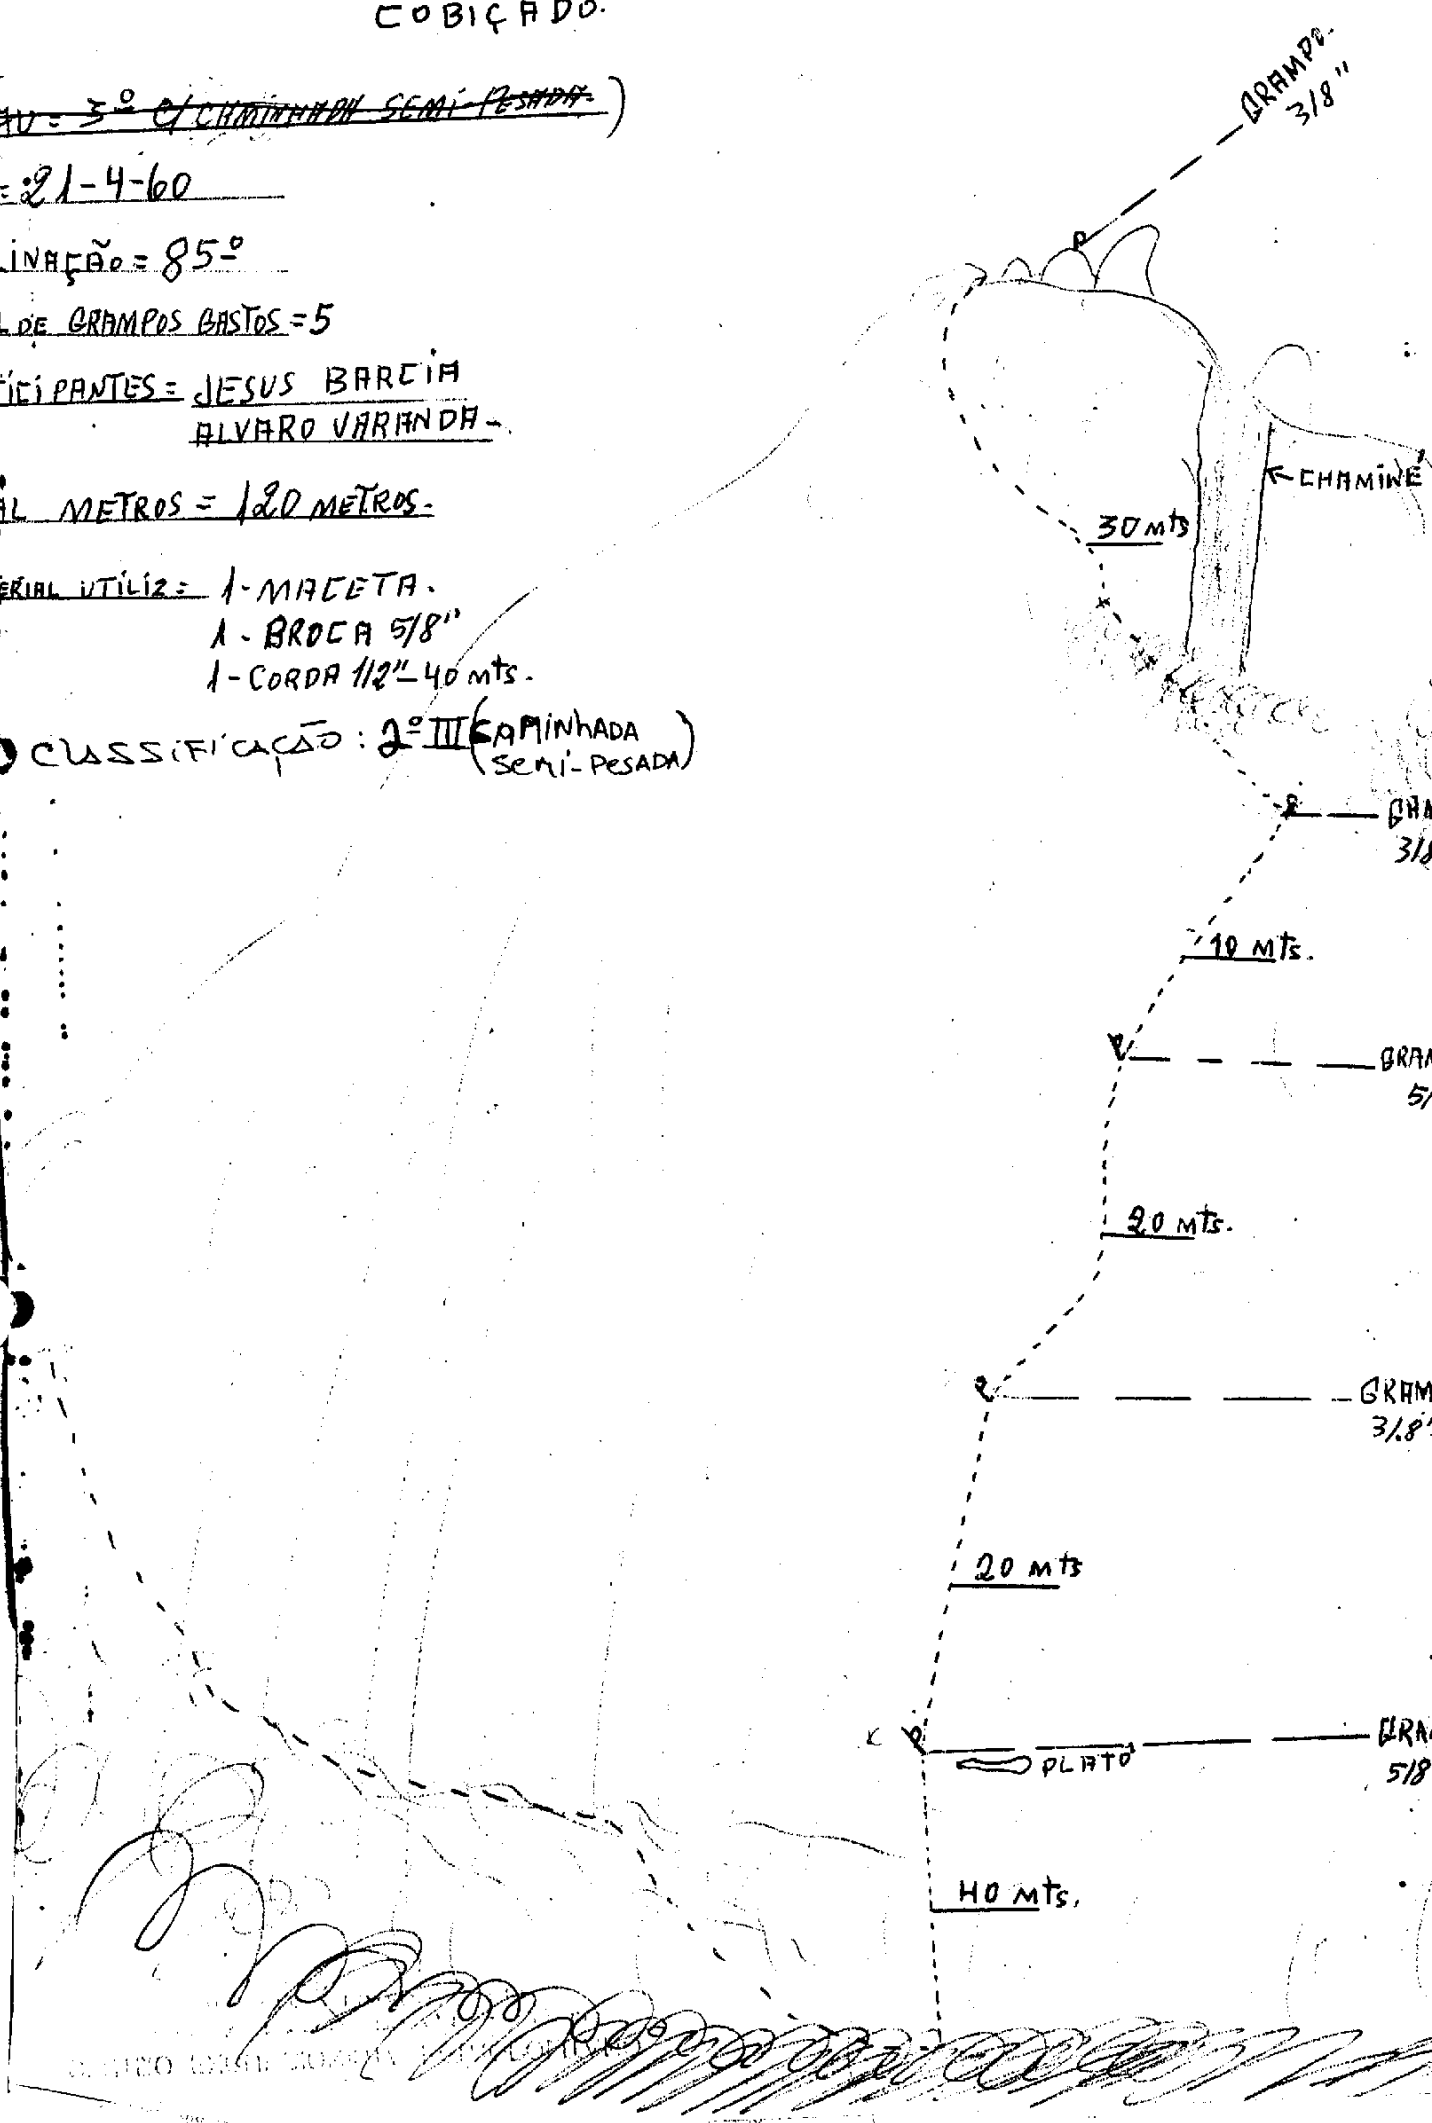 COBIÇADO.
AU = 3º C/ CAMINHADA SEMI-PESADA.)
= 21-4-60
LINAÇÃO = 85º
L DE GRAMPOS GASTOS = 5
TÍCIPANTES = JESUS BARCIA
ALVARO VARANDA-.
AL METROS = 120 METROS.
ERIAL UTÍLÍZ = 1-MACETA.
1 - BROCA 5/8"
1 - CORDA 1/2" - 40 mts.
CLASSIFICAÇÃO : 2º III (CAMINHADA
SEMI-PESADA)
GRAMPO.
3/8"
CHAMINÉ
30 mts
GRA
3/8
10 mts.
GRAM
5/
20 mts.
GRAM
3/8"
20 mts
GRA
5/8
PLATÔ
40 mts.